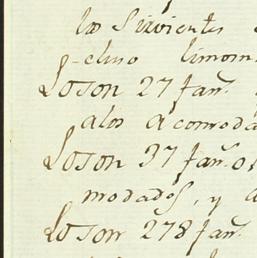 los Sirvientes
Loson 27 fan.s
alos Acomoda
Loson 37 fan.s
modados, y a
Loson 278 fan.s